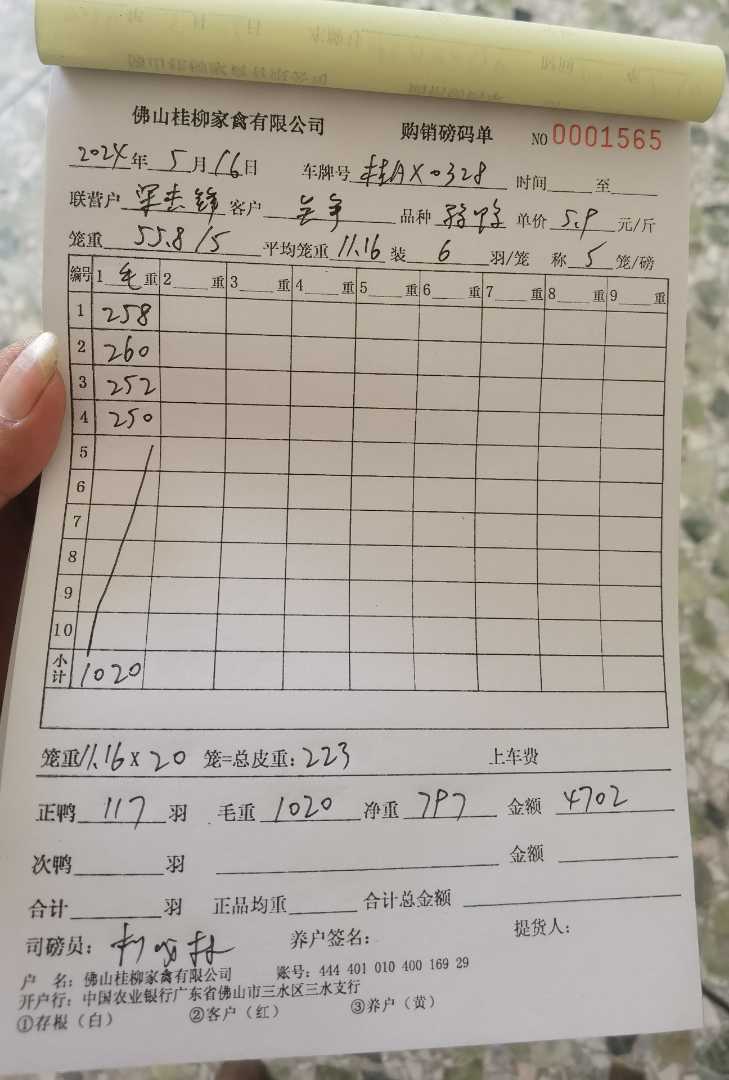 佛山桂柳家禽有限公司 购销磅码单 NO 0001565
2024年 5月16日 车牌号 桂AX0328 时间 至
联营户 梁志锋 客户 品种 单价 5.9 元/斤
笼重 55.8/5 平均笼重 11.16 装 6 羽/笼 称 5 笼/磅
编号 1 毛 重 2 重 3 重 4 重 5 重 6 重 7 重 8 重 9 重
1 258
2 260
3 252
4 250
5
6
7
8
9
10
小计 1020
笼重 11.16 X 20 笼=总皮重: 223 上车费
正鸭 117 羽 毛重 1020 净重 797 金额 4702
次鸭 羽 金额
合计 羽 正品均重 合计总金额
司磅员: 养户签名: 提货人:
户 名: 佛山桂柳家禽有限公司 账号: 444 401 010 400 169 29
开户行: 中国农业银行广东省佛山市三水区三水支行
①存根（白） ②客户（红） ③养户（黄）